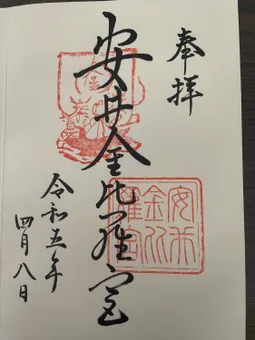 奉拝
安井金比羅宮
安井
金比
羅宮
令和五年
四月八日